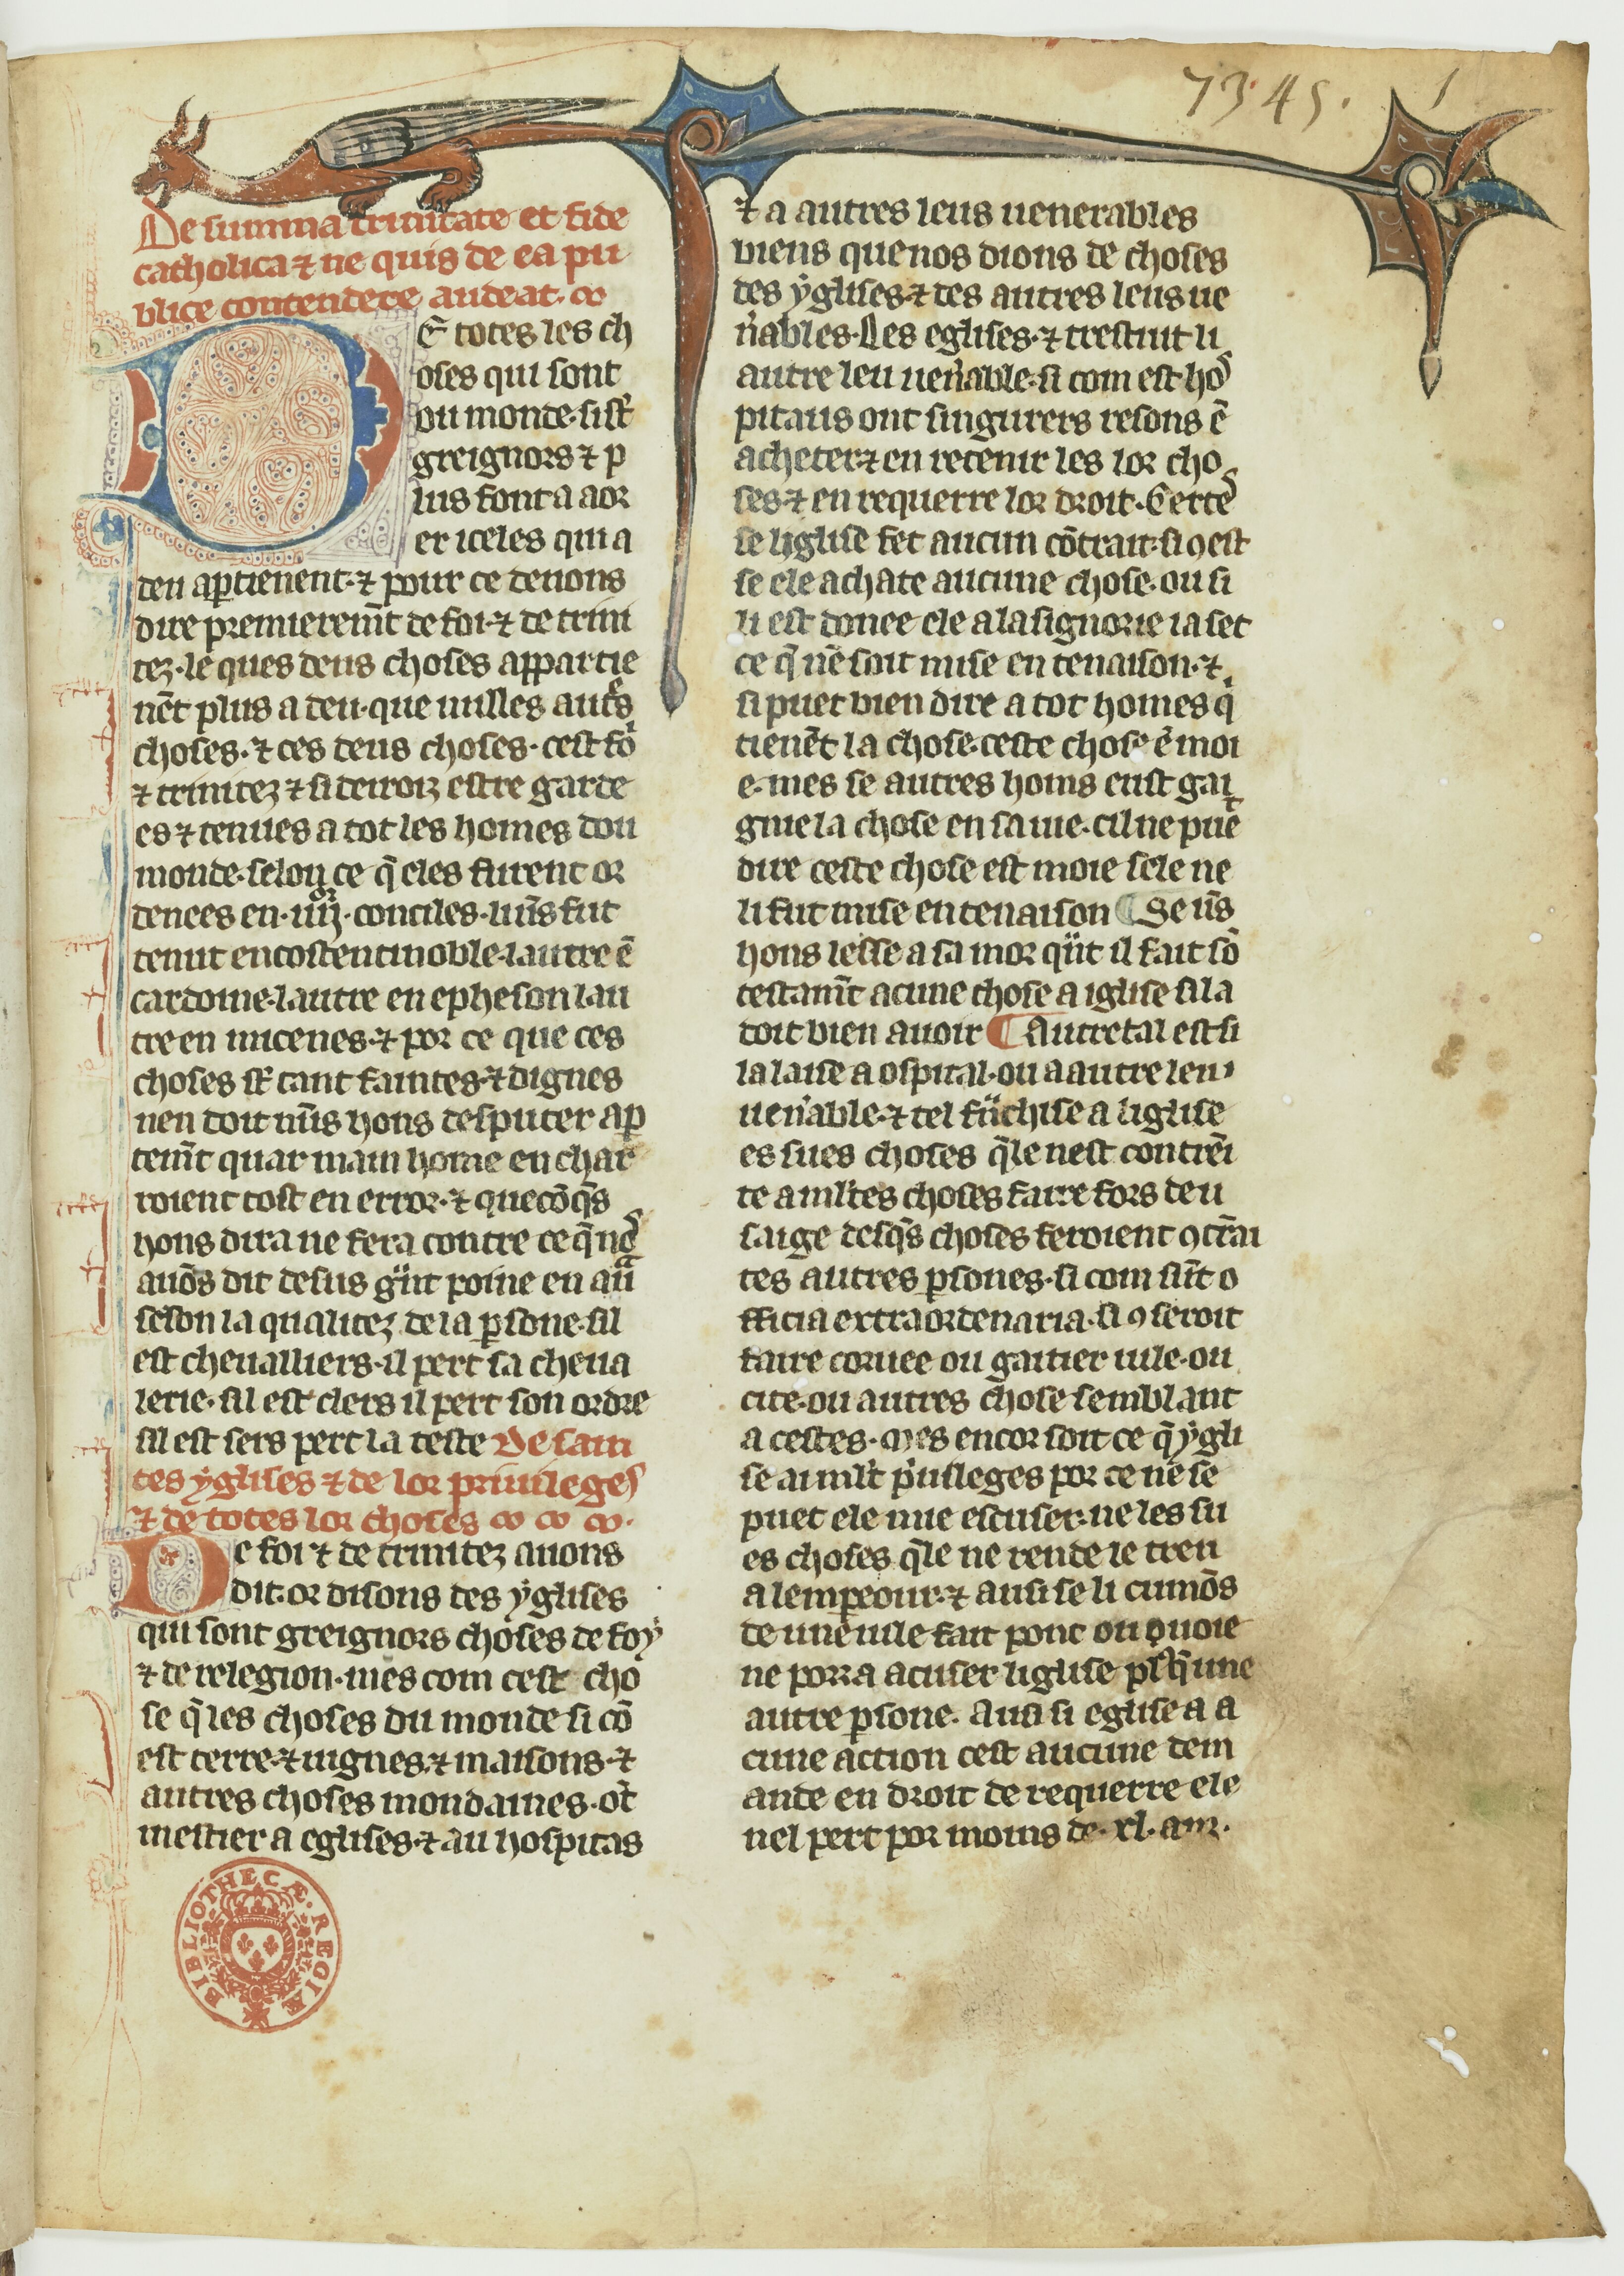 7345. 1
De summa trinitate et fide
catholica ⁊ ne quis de ea pu
blice contendere audeat. ꝏ
DE totes les ch
oses qui sont
ou monde. si sūt
greignors ⁊ p
lus font a aor
er iceles qui a
deu apꝑtienent. ⁊ pour ce deuons
dire premieremēt de foi. ⁊ de trini
tez. le ques deus choses appartie
nēt plus a deu. que nulles autˢes
choses. ⁊ ces deus choses. cest foi
⁊ trinitez ⁊ si deiuoiz estre garde
es ⁊ tenues a tot les homes dou
monde. selon ce q̄ eles furent or
denees en. iiij. conciles. luns fut
tenut en costentinoble. lautre ē
cardoine. lautre en epheson lau
tre en nicenes. ⁊ por ce que ces
choses sūt tant saintes. ⁊ dignes
nen doit nuns hons desputer ap
temēt quar main home en char
roient tost en error. ⁊ quecōq̄s
hons dira ne fera contre ce q̄ nos
auōs dit desus
selon la qualitez de la ꝑsone. sil
est cheualliers. il pert sa cheua
lerie. sil est clers il pert son ordre
sil est sers pert la teste De sain
tes yglises ⁊ de lor priuileges
⁊ de totes lor choses ꝏ ꝏ ꝏ.
De foi ⁊ de trinitez auons
dit. or disons des yglises
qui sont greignors choses de foy
⁊ de relegion. mes com cest cho
se q̄ les choses du monde si cō
est terre. ⁊ uignes. ⁊ maisons. ⁊
autres choses mondaines. ōt
mestier a eglises. ⁊ au hospitas
⁊ a autres leus uenerables
biens que nos dions de choses
des yglises. ⁊ des autres leus ue
n̄ables. Les eglises. ⁊ trestuit li
autre leu uen̄able. si com est hos
pitaus ont singurers resons ē
acheter. ⁊ en retenir les lor cho
ses. ⁊ en requerre lor droit. Certes
se liglise fet aucun cōtrait. si ꝯ est
se ele achate aucune chose. ou si
li est donee ele a la signorie ia set
ce q̄ ne soit mise en tenaison. ⁊
si puet bien dire a tot homes q̄
tienēt la chose. ceste chose ē moi
e. mes se autres homs eust gai
gnie la chose en sa uie. cil ne puet
dire ceste chose est moie sele ne
li fut mise en tenaison ¶ Se ūs
hons lesse a sa mor qn̄t il fait sō
testamēt acune chose a iglise si la
doit bien auoir ¶ Autretal est si
la laise a ospital. ou a autre leu
uen̄able. ⁊ tel fūchise a liglise
es sues choses q̄le nest contrēi
te a nulˢtes choses faire fors deu
saige desq̄s choses seroient ꝯtrāi
tes autres ꝑsones. si com sūt o
fficia extraordenaria. si ꝯ seroit
faire coruee ou gaitier uile. ou
cite. ou autres chose semblant
a cestes. Mes encor soit ce q̄ ygli
se ai mlˢt p̄uileges por ce ne se
puet ele mie escuser. ne les su
es choses q̄le ne rende le treu
a lempeour. ⁊ ausi se li cumōs
de une uile fait pont ou quoie
ne porra acuser liglise plˢ q̄ une
autre ꝑsone. Ausi si eglise a a
cune action cest aucune dem
ande en droit de requerre ele
nel pert por moins de. xl. anz.
BIBLIOTHECÆ REGIÆ